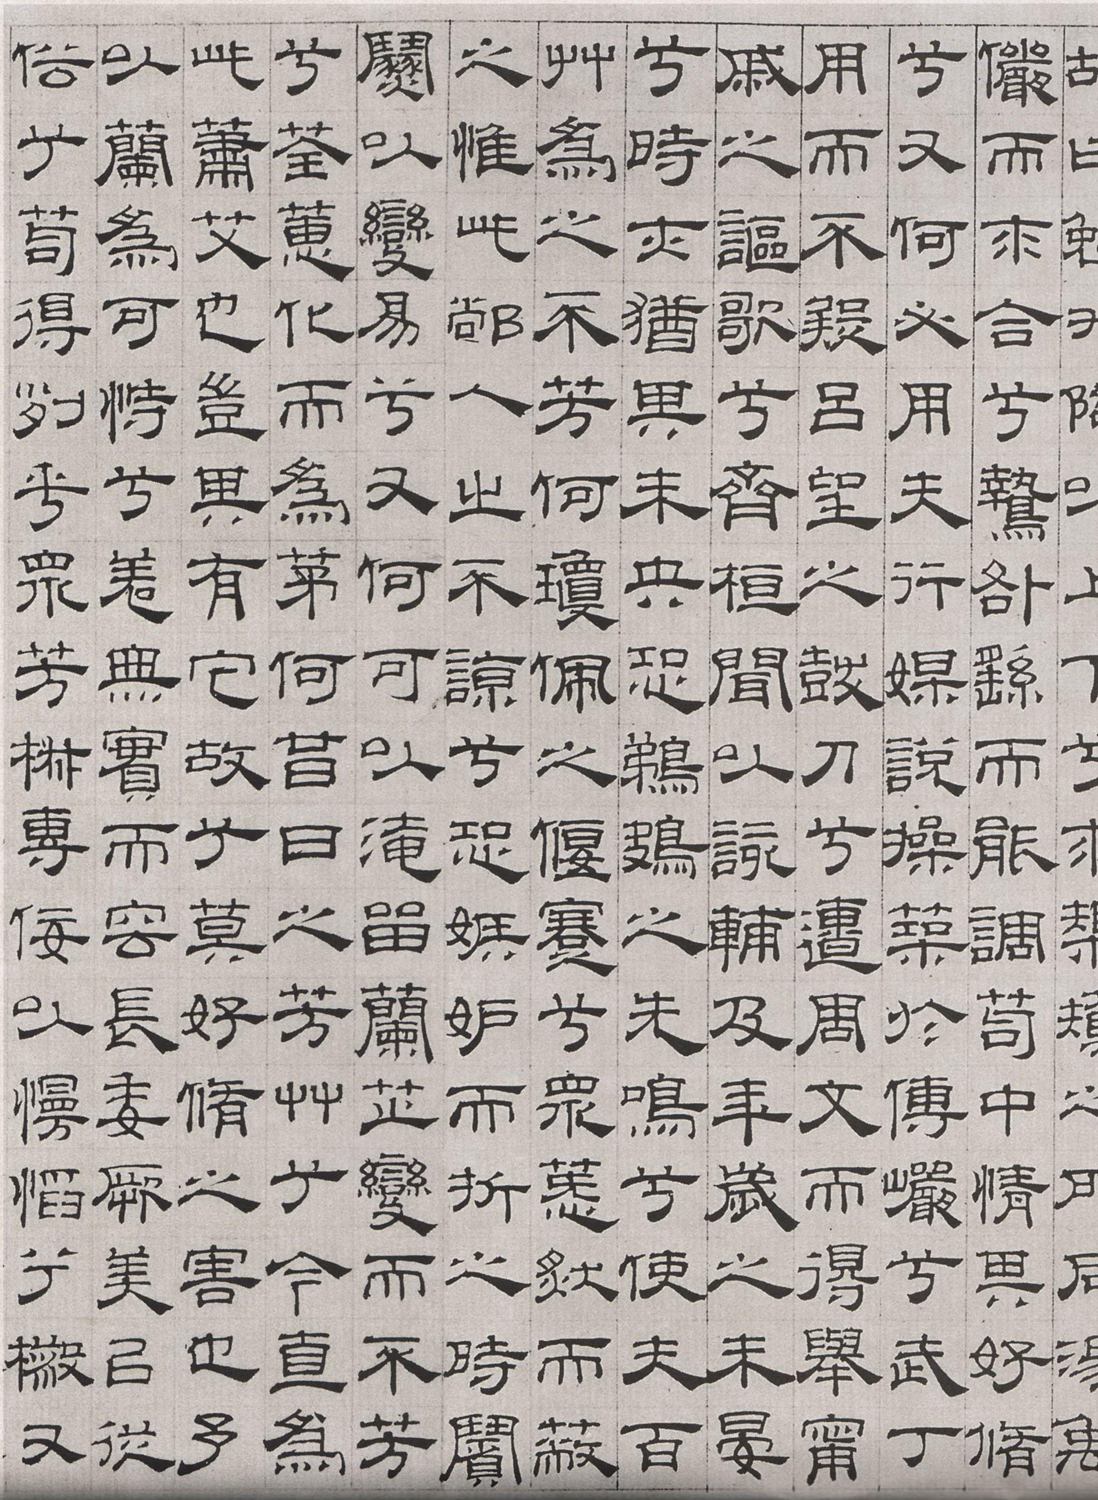 故曰勉升降以上下兮求榘矱之所同湯禹
儼而求合兮摯咎繇而能調苟中情其好脩
兮又何必用夫行媒說操築於傅巖兮武丁
用而不疑呂望之鼓刀兮遭周文而得舉甯
戚之謳歌兮齊桓聞以該輔及年歲之未晏
兮時亦猶其未央恐鵜鴂之先鳴兮使夫百
艸為之不芳何瓊佩之偃蹇兮眾薆然而蔽
之惟此黨人之不諒兮恐嫉妒而折之時繽
紛以變易兮又何可以淹留蘭芷變而不芳
兮荃蕙化而為茅何昔日之芳艸兮今直為
此蕭艾也豈其有它故兮莫好脩之害也予
以蘭為可恃兮羌無實而容長委厥美以從
俗兮苟得列乎眾芳椒專佞以慢慆兮樧又